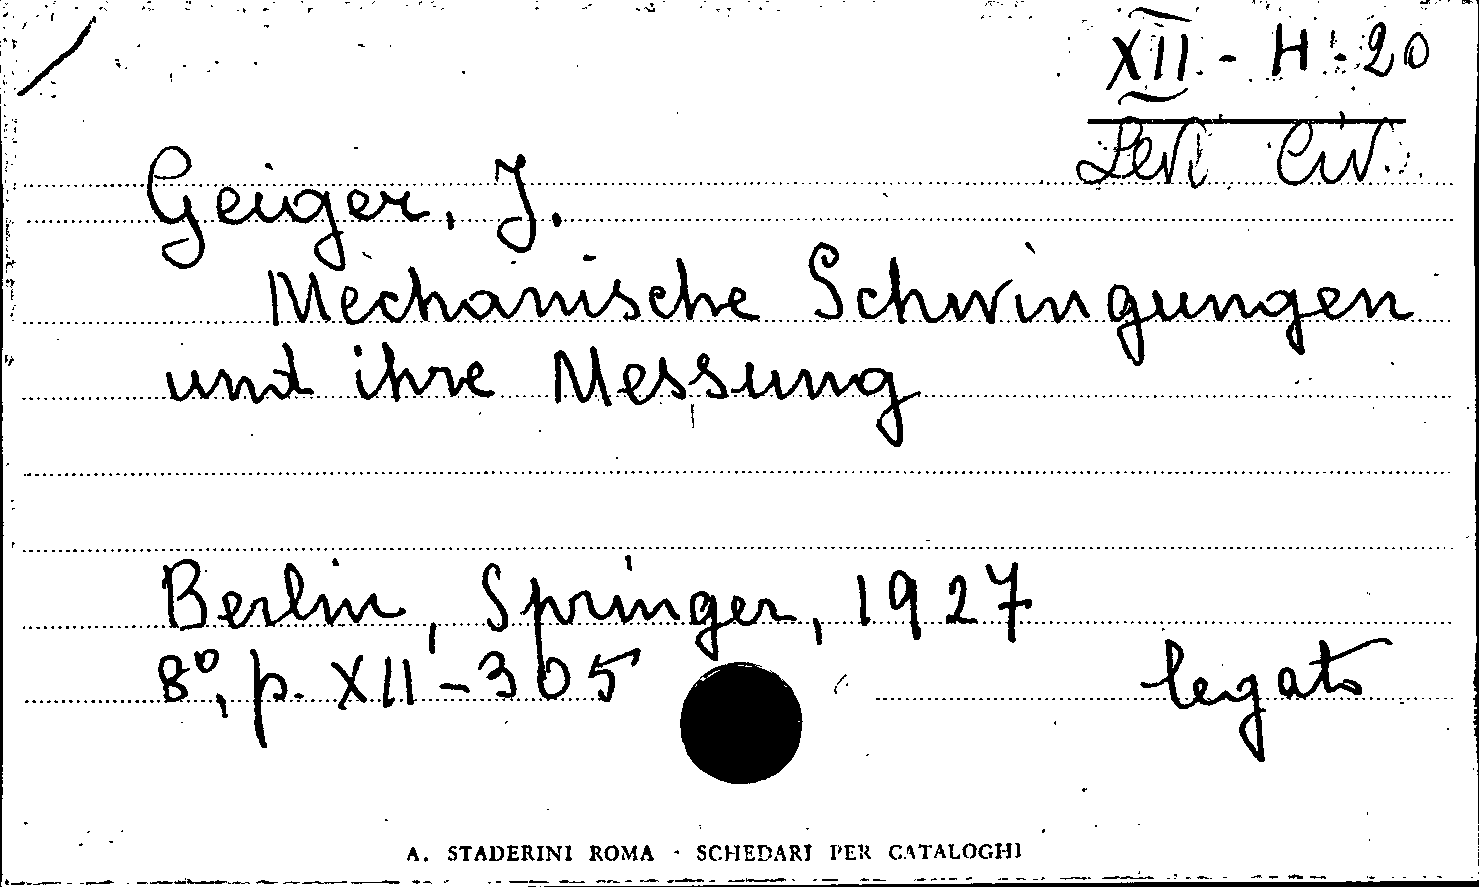 XII - H - 20
Lev. Civ.
Geiger, J.
Mechanische Schwingungen
und ihre Messung
Berlin, Springer, 1927
8º, p. XII - 305
legato
A. STADERINI ROMA - SCHEDARI PER CATALOGHI